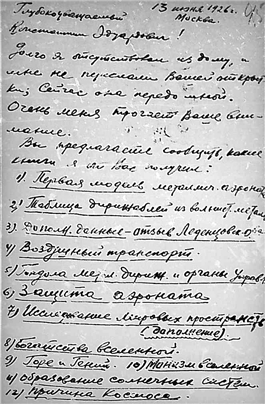 13 июня 1926 г.
Москва.
Глубокоуважаемый
Константин Эдуардович!
Долго я отсутствовал из дому, и
мне не переслали Вашей открыт-
ки. Сейчас она передо мной.
Очень меня трогает Ваше вни-
мание.
Вы предлагаете сообщить, какие
книги я от Вас получил:
1) Первая модель металлич. аэроната
2) Таблица дирижаблей из волнист. металла
3) Дополн. данные - отзыв Леденцовск. о-ва
4) Воздушный транспорт.
5) Гондола мет. дириж. и органы управл.
6) Защита аэроната
7) Исследование мировых пространств
(дополнено).
8) Богатства вселенной.
9) Горе и Гений. 10) Монизм вселенной
11) Образование солнечных систем.
12) Причина Космоса.